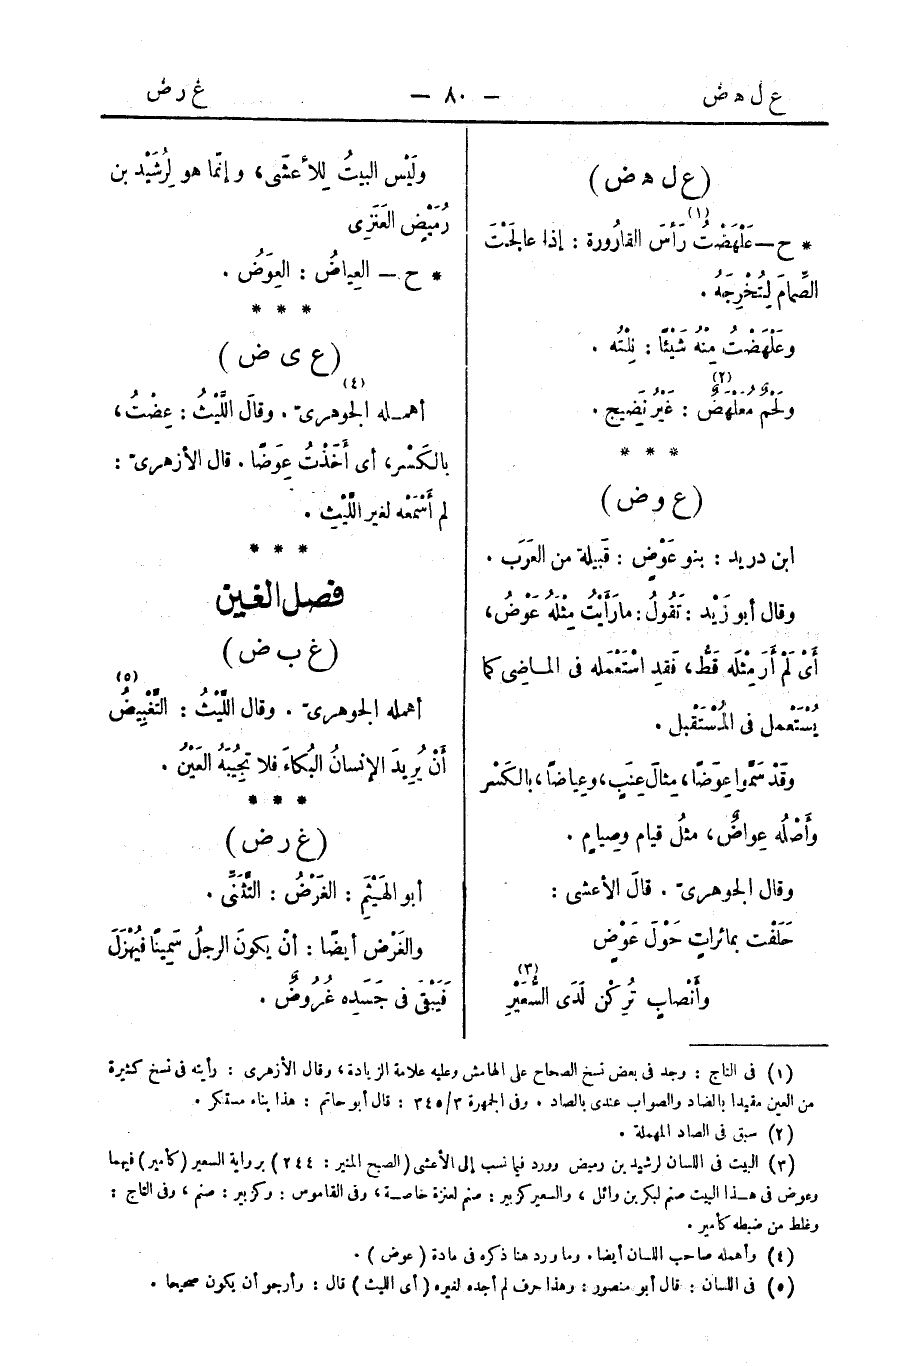 ع ل ھ ض
— ٨٠ —
غ ر ض
(ع ل ھ ض)
* ح — عَلْهَضْتُ (١) رَأْسَ القارُورة : إذا عالَجْتَ
الصِّمامَ لِتُخْرِجَهُ .
وعَلْهَضْتُ مِنْهُ شَيْئًا : نِلْتُه .
ولَحْمٌ مُعَلْهَضٌ (٢) : غَيْرُ نَضِيج .
* * *
(ع و ض)
ابن دريد : بنو عَوْضٍ : قَبِيلة من العَرَب .
وقال أبو زَيْد : تَقُولُ : ما رَأَيْتُ مِثْلَهُ عَوْضُ،
أَىْ لَمْ أَرَ مِثْلَه قَطُّ، فَقد اسْتَعْمَله فى المـاضِى كما
يُسْتَعْمل فى المُسْتَقْبل .
وقَدْ سَمَّوا عِوَضًا، مِثالَ عِنَبٍ، وعِياضًا، بالكَسْر
وأَصْلُه عِواضٌ، مثلُ قيام وصِيامٍ .
وقال الجوهرىّ . قالَ الأعْشى :
حَلَفْت بمائراتٍ حَوْلَ عَوْضٍ
وأَنْصابٍ تُرِكْن لَدَى السُّعَيْرِ (٣)
ولَيْس البيتُ لِلأعشَى، وإنّما هو لِرُشَيْد بن
رُمَيْضٍ العَنَزِى
* ح — العِياضُ : العِوَضُ .
* * *
(ع ى ض)
أهمـله الجوهرىّ (٤) . وقالَ اللَّيْثُ : عِضْتُ،
بالكَسْر، أى أَخَذْتُ عِوَضًا . قال الأزهرىّ :
لم أَسْمَعْه لغير اللَّيْثِ .
* * *
فصل الغين
(غ ب ض)
أهمله الجوهرىّ . وقال اللَّيْثُ : التَّغْبِيضُ (٥)
أَنْ يُرِيدَ الإنسانُ البُكاءَ فلا تجِيبُهُ العَيْنُ .
* * *
(غ ر ض)
أبو الهَيْثَمِ : الغَرْضُ : التَّثَنِّى .
والغَرْض أيضًا : أنْ يكونَ الرجلُ سَمِينًا فيُهْزَلَ
فَيَبْقَى فى جَسَدِه غُرُوضٌ .
(١) فى التاج : وجد فى بعض نسخ الصحاح على الهامش وعليه علامة الزيادة، وقال الأزهرى : رأيته فى نسخ كثيرة
من العين مقيدا بالضاد والصواب عندى بالصاد . وفى الجمهرة ٣٤٥/٣ : قال أبو حاتم : هذا بناء مستنكر .
(٢) سبق فى الصاد المهملة .
(٣) البيت فى اللسان لرشيد بن رميض وورد فيما نسب إلى الأعشى (الصبح المنير : ٢٤٤) برواية السعير (كأمير) فيهما
وعوض فى هـذا البيت صنم لبكر بن وائل، والسعير كزبير : صنم لعنزة خاصـة، وفى القاموس : وكزبير : صنم، وفى التاج :
وغلط من ضبطه كأمير .
(٤) وأهمله صاحب اللسان أيضا . وما ورد هنا ذكره فى مادة (عوض) .
(٥) فى اللسان : قال أبو منصور : وهذا حرف لم أجده لغيره (أى الليث) قال : وأرجو أن يكون صحيحا .